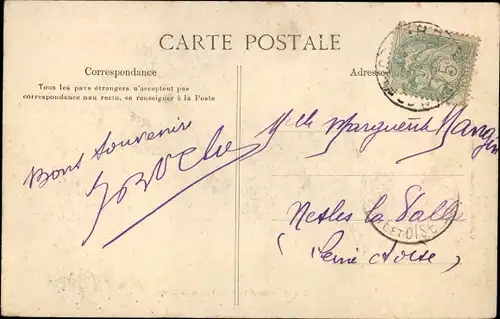 CARTE POSTALE
Correspondance
Tous les pays étrangers n'acceptent pas
correspondance au recto, se renseigner à la Poste
Adresse
5
Bons Souvenirs
Mlle Marguerite
Nesles la Vallée
(Seine et Oise)
ET OISE